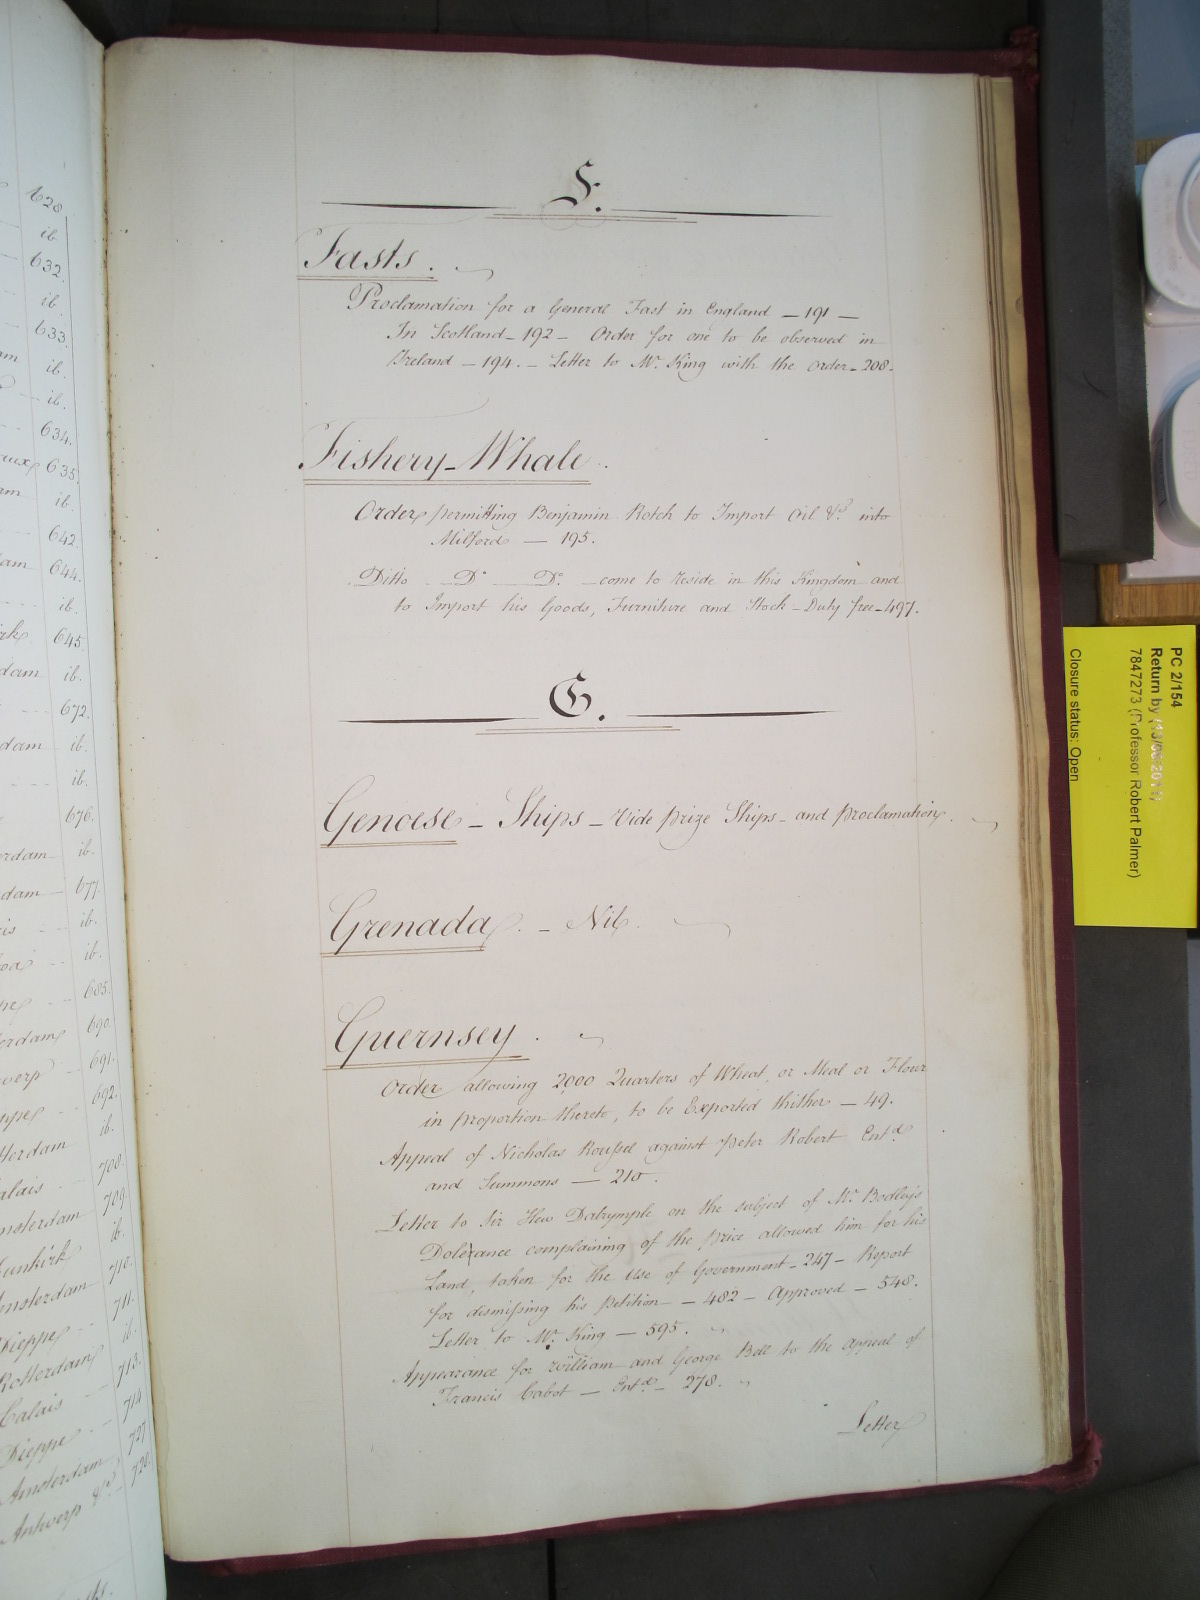 628
ib.
632.
ib.
633.
ib.
ib.
634.
635.
ib.
642.
644.
ib.
645.
dam ib.
672.
dam ib.
ib.
676.
erdam ib.
dam 677.
ib.
ib.
685.
erdam 690.
werp 691.
692.
tterdam ib.
alais 708.
msterdam 709.
Dunkirk ib.
Amsterdam 710.
Dieppe 711.
Rotterdam ib.
Calais 713.
Dieppe 714
Amsterdam 727
Antwerp &c. 728.
F.
Fasts.
Proclamation for a General Fast in England — 191 —
In Scotland — 192 — Order for one to be observed in
Ireland — 194. — Letter to Mr. King with the Order — 208.
Fishery — Whale.
Order permitting Benjamin Rotch to Import Oil &c. into
Milford — 195.
Ditto — Do. — Do. — come to reside in this Kingdom and
to Import his Goods, Furniture and Stock — Duty free — 497.
G.
Genoese — Ships — Vide Prize Ships — and Proclamation.
Grenada. — Nil.
Guernsey.
Order allowing 2000 Quarters of Wheat, or Meal or Flour
in proportion thereto, to be Exported thither — 49.
Appeal of Nicholas Roussel against Peter Robert Entd.
and Summons — 210.
Letter to Sir Hew Dalrymple on the subject of Mr. Bodley's
Doleance complaining of the Price allowed him for his
Land, taken for the Use of Government — 247 — Report
for dismissing his Petition — 482 — Approved — 548.
Letter to Mr. King — 595.
Appearance for William and George Bell to the Appeal of
Francis Cabot — Entd. — 278.
Letter
PC 2/154
Return by
7847273 (Professor Robert Palmer)
Closure status: Open